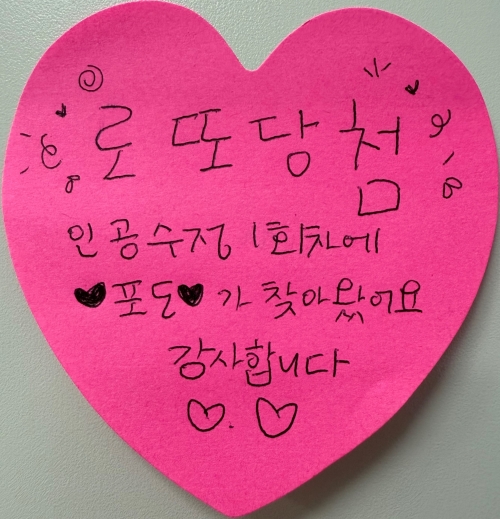 로또당첨
인공수정 1회차에
♥포도♥가 찾아왔어요
감사합니다
♡.♡